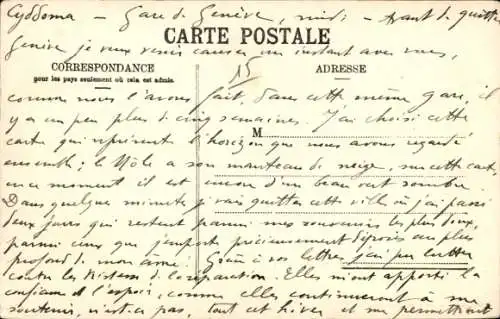 Gare de Genève, midi – Avant de quitter
Genève je veux venir causer un instant avec vous,
CARTE POSTALE
CORRESPONDANCE
pour les pays seulement où cela est admis.
ADRESSE
15
M
comme nous l'avons fait, dans cette même gare, il
y a un peu plus de cinq semaines. J'ai choisi cette
carte qui représente l'horizon que nous avons regardé
ensemble; le Môle a son manteau de neige, sur cette carte,
en ce moment il est encore d'un beau vert sombre.
Dans quelques minutes je vais quitter cette ville où j'ai passé
deux jours qui restent parmi mes souvenirs les plus doux,
parmi ceux que j'emporte précieusement déposés au plus
profond de mon âme. Grâce à vos lettres j'ai pu lutter
contre la tristesse de la séparation. Elles m'ont apporté la
confiance et l'espoir, comme elles continueront à me
soutenir, n'est-ce pas, tout cet hiver et me permettront